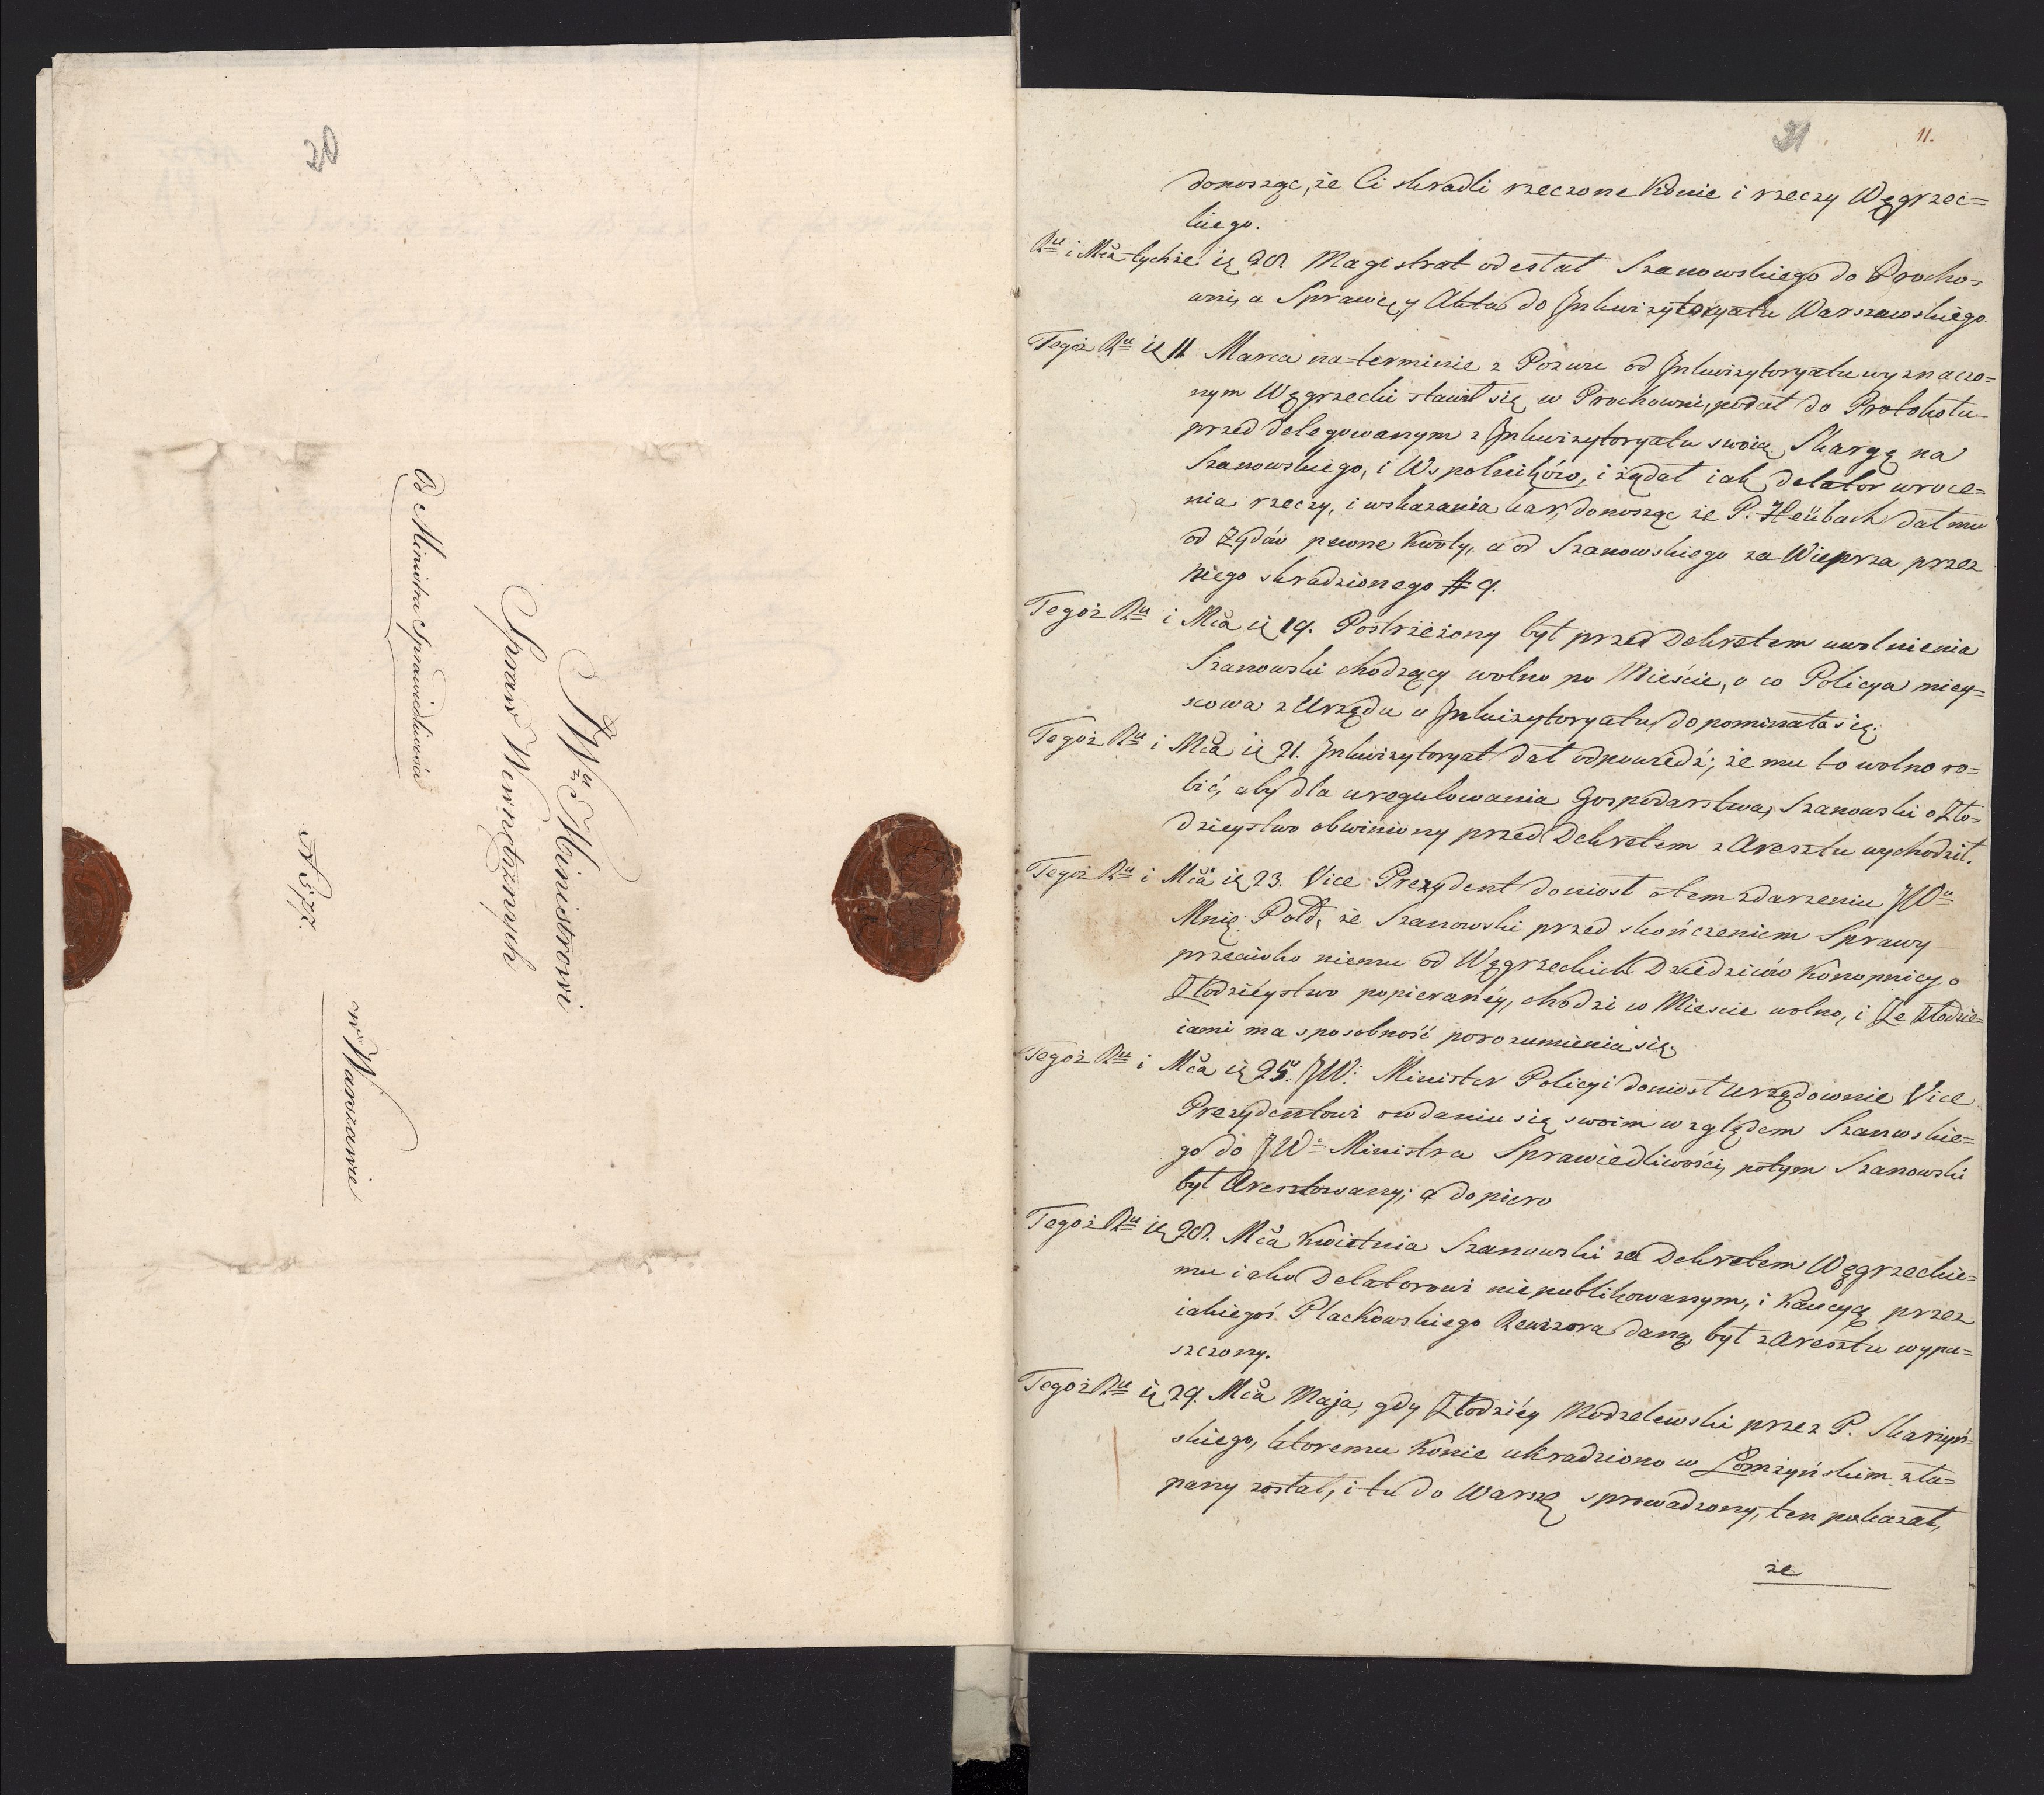 20
Od Ministra Sprawiedliwości
JW<sup>u</sup> Ministrowi
Spraw Wewnętrznych
w Warszawie
21 11.
donosząc, że Ci skradli rzeczone Konie i rzeczy Węgrzec=
kiego.
R<sup>u</sup> i Mca tychże 28 Magistrat odesłał Szanowskiego do Procho=
wni, a Sprawę, y Akta do Inkwizytoryatu Warszawskiego.
Tegoż R<sup>u</sup> 11 Marca na terminie z Pozwu od Inkwizytoryatu wyznaczo=
nym Węgrzecki stawił się w Prochowni, podał do Protokołu
przed delegowanym z Inkwizytoryatu swoią Skargę na
Szanowskiego, i Wspolników, i żądał iak delator wroce=
nia rzeczy, i wskazania kar, donosząc że P. Heübach dał mu
od Żydów pewne Kwoty, a od Szanowskiego za Wieprza przez
niego skradzionego # 9.
Tegoż R<sup>u</sup> i Mca 19. Postrzeżony był przed Dekretem uwolnienia
Szanowski chodzący wolno po Mieście, o co Policya miey=
scowa z Urzędu u Inkwizytoryatu dopominała się.
Tegoż R<sup>u</sup> i Mca 21. Inkwizytoryat dał odpowiedź; że mu to wolno ro=
bić, aby dla uregulowania Gospodarstwa, Szanowski o Zło=
dzieystwo obwiniony przed Dekretem z Aresztu wychodził.
Tegoż R<sup>u</sup> i Mca 23. Vice Prezydent doniosł o tem zdarzeniu JW<sup>u</sup>
że Szanowski przed skończeniem Sprawy
przeciwko niemu od Węgrzeckich Dziedziców Konopnicy o
Złodzieystwo popieraney, chodzi w Miescie wolno, i Ze Złodzie=
iami ma sposobność porozumienia się.
Tegoż R<sup>u</sup> i Mca 25. JW. Minister Policyi doniosł urzędownie Vice
Prezydentowi o udaniu się swoim względem Szanwskie=
go do JW<sup>o</sup> Ministra Sprawiedliwości, potym Szanowski
był Aresztowany; a dopiero
Tegoż R<sup>u</sup> 28. Mca Kwietnia Szanowski za Dekretem Węgrzeckie=
mu iako Delatorowi niepublikowanym, i Kaucyą przez
iakiegoś Plackowskiego Rewizora daną był z Aresztu wypu=
szczony.
Tegoż R<sup>u</sup> 29. Mca Maja, gdy Złodziéy Modzelewski przez P. Skarżyń=
skiego, ktoremu Konie ukradziono w Łomżyńskim zła=
pany został, i tu do Warszę sprowadzony, ten pokazał,
że